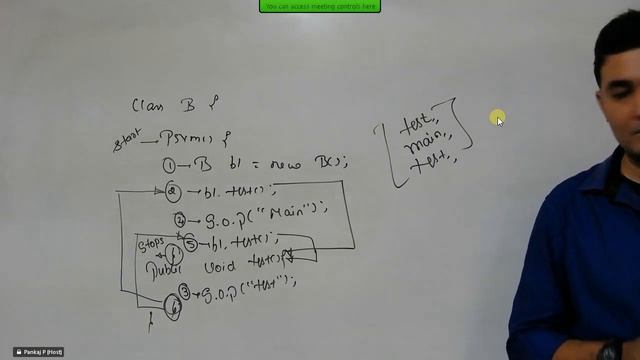 You can access meeting controls here
Class B {
Start → Psvm() {
① → B b1 = new B();
② → b1.test();
④ → S.o.p("Main");
⑤ → b1.test();
Stops }
Public void test() {
③ → S.o.p("test");
⑥
}
test,,
main,,
test,,
Pankaj P (Host)